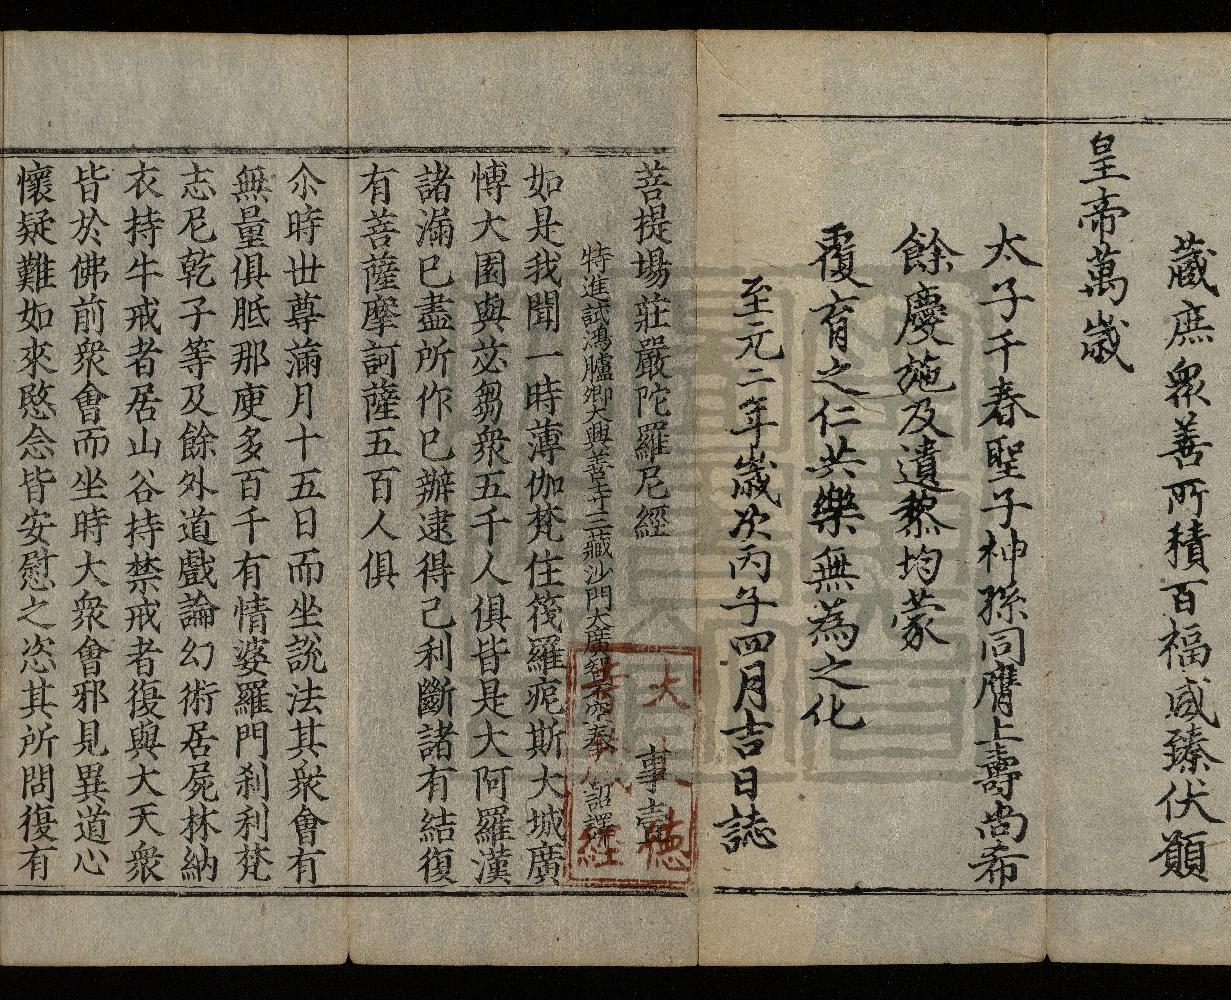 藏庶衆善所積百福咸臻伏願
皇帝萬歲
太子千春聖子神孫同膺上壽尚希
餘慶施及遺黎均蒙
覆育之仁共樂無為之化
至元二年歲次丙子四月吉日誌
菩提場莊嚴陀羅尼經 事壹
特進試鴻臚卿大興善寺三藏沙門大廣智不空奉 詔譯
如是我聞一時薄伽梵住筏羅痆斯大城廣
博大園與苾芻衆五千人俱皆是大阿羅漢
諸漏已盡所作已辦逮得己利斷諸有結復
有菩薩摩訶薩五百人俱
尒時世尊滿月十五日而坐說法其衆會有
無量俱胝那庾多百千有情婆羅門刹利梵
志尼乾子等及餘外道戲論幻術居屍林納
衣持牛戒者居山谷持禁戒者復與大天衆
皆於佛前衆會而坐時大衆會邪見異道心
懷疑難如來愍念皆安慰之恣其所問復有